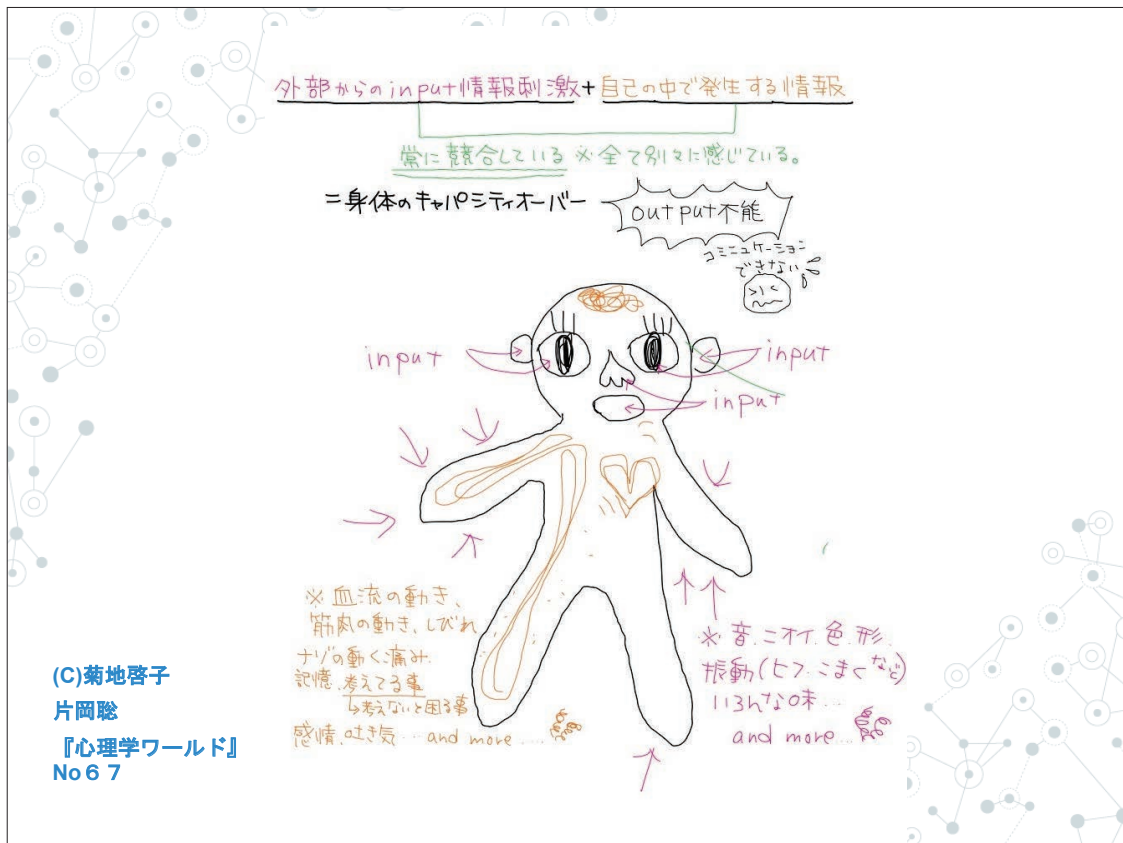 外部からのinput情報刺激+自己の中で発生する情報
常に競合している ※全て別々に感じている。
=身体のキャパシティオーバー
output不能
コミニュケーション
できない
input
input
input
※血流の動き、
筋肉の動き、しびれ
ナゾの動く痛み.
記憶、考えてる事
↳考えないと困る事
感情、吐き気…and more….
※音.ニオイ.色.形.
振動(ヒフ.こまくなど)
いろんな味…
and more…
(C)菊地啓子
片岡聡
『心理学ワールド』
No67